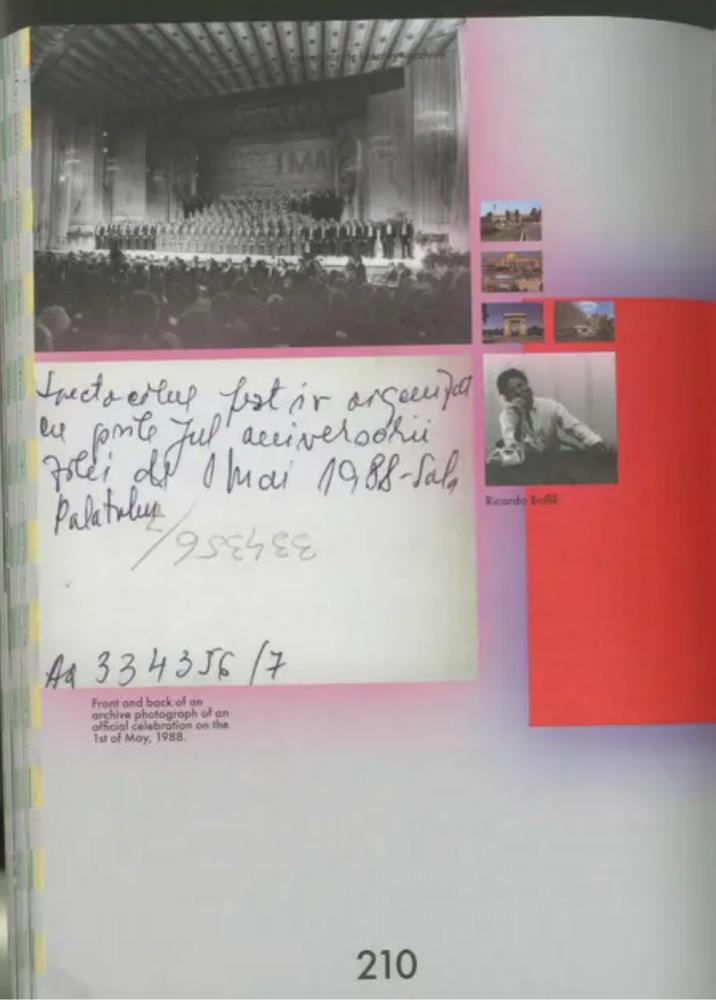 Spectacolul festiv organizat
cu prilejul aniversării
zilei de 1 Mai 1988-Sala
Palatului
334356/7
Aa 334356/7
Front and back of an
archive photograph of an
official celebration on the
1st of May, 1988.
Ricardo Bofill
210